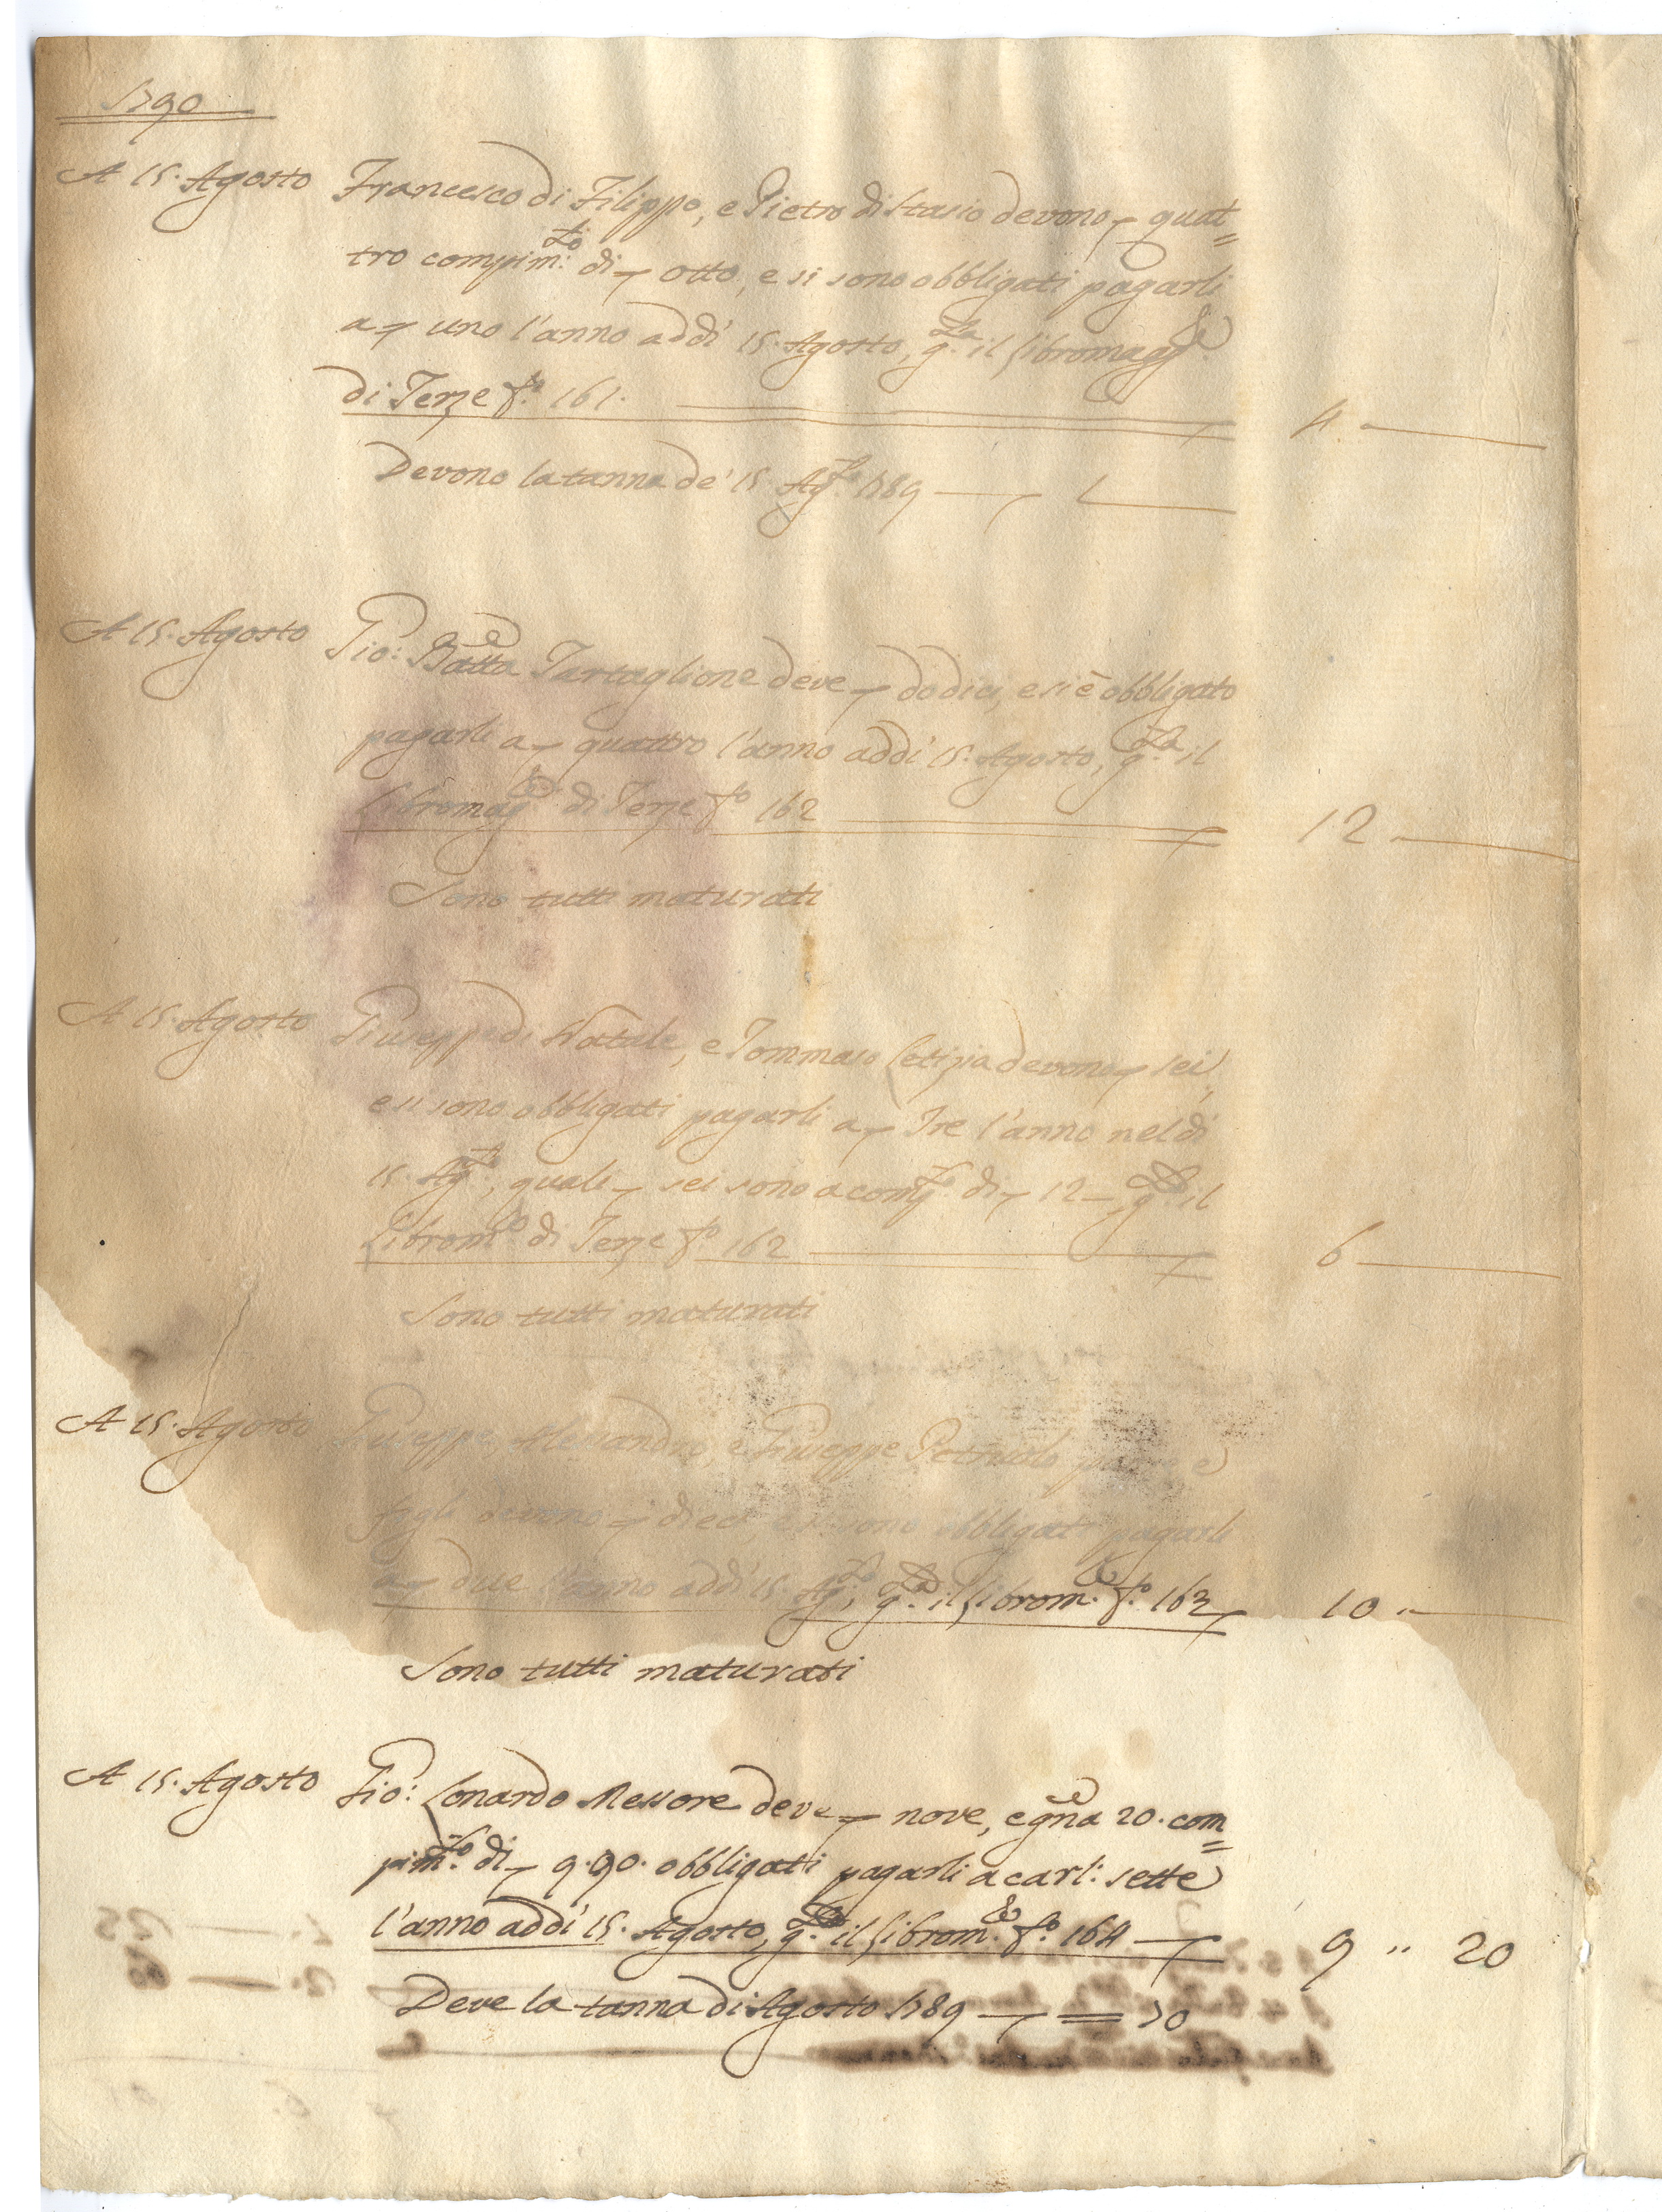 1790
A 15. Agosto Francesco di Filippo, e Pietro di Stasio devono quat=
tro compim:to di otto, e si sono obbligati pagarli
a uno l'anno addì 15. Agosto, g.ta il libro magg.e
di Terze fo. 161. 4. —
Devono la tanna de' 15. Ag.to 1789 — 1 —
A 15. Agosto Gio: Batta Tartaglione deve dodici, e si è obbligato
pagarli a quattro l'anno addì 15. Agosto, g.ta il
libro mag.e di Terze fo. 162 12. —
Sono tutti maturati
A 15. Agosto Giuseppe di Natale, e Tommaso Letizia devono sei,
e si sono obbligati pagarli a Tre l'anno nel dì
15. Ag.to, quali sei sono a comp.to di 12 —, g.ta il
Libro m.e di Terze fo. 162 6 —
Sono tutti maturati
A 15. Agosto Giuseppe, Alessandro, e Giuseppe Petriccolo e
figli devono dieci, e si sono obbligati pagarli
a due l'anno addì 15. Ag.to, g.ta il libro m.e fo. 163 10 „ —
Sono tutti maturati
A 15. Agosto Gio: Lonardo Messore deve nove, e gna 20. com=
pim.to di 9.90. obbligati pagarli a carl: sette
l'anno addì 15. Agosto, g.ta il libro m.e fo. 164 — 9 „ 20
Deve la tanna di Agosto 1789 — = 70